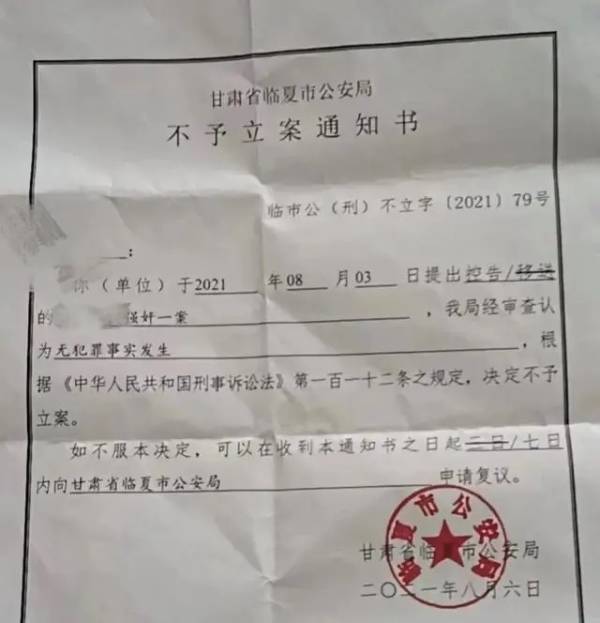 甘肃省临夏市公安局
不予立案通知书
临市公（刑）不立字〔2021〕79号
：
你（单位）于2021年08月03日提出控告/移送
的 强奸一案，我局经审查认
为无犯罪事实发生，根
据《中华人民共和国刑事诉讼法》第一百一十二条之规定，决定不予
立案。
如不服本决定，可以在收到本通知书之日起三日/七日
内向甘肃省临夏市公安局申请复议。
临夏市公安局
甘肃省临夏市公安局
二〇二一年八月六日